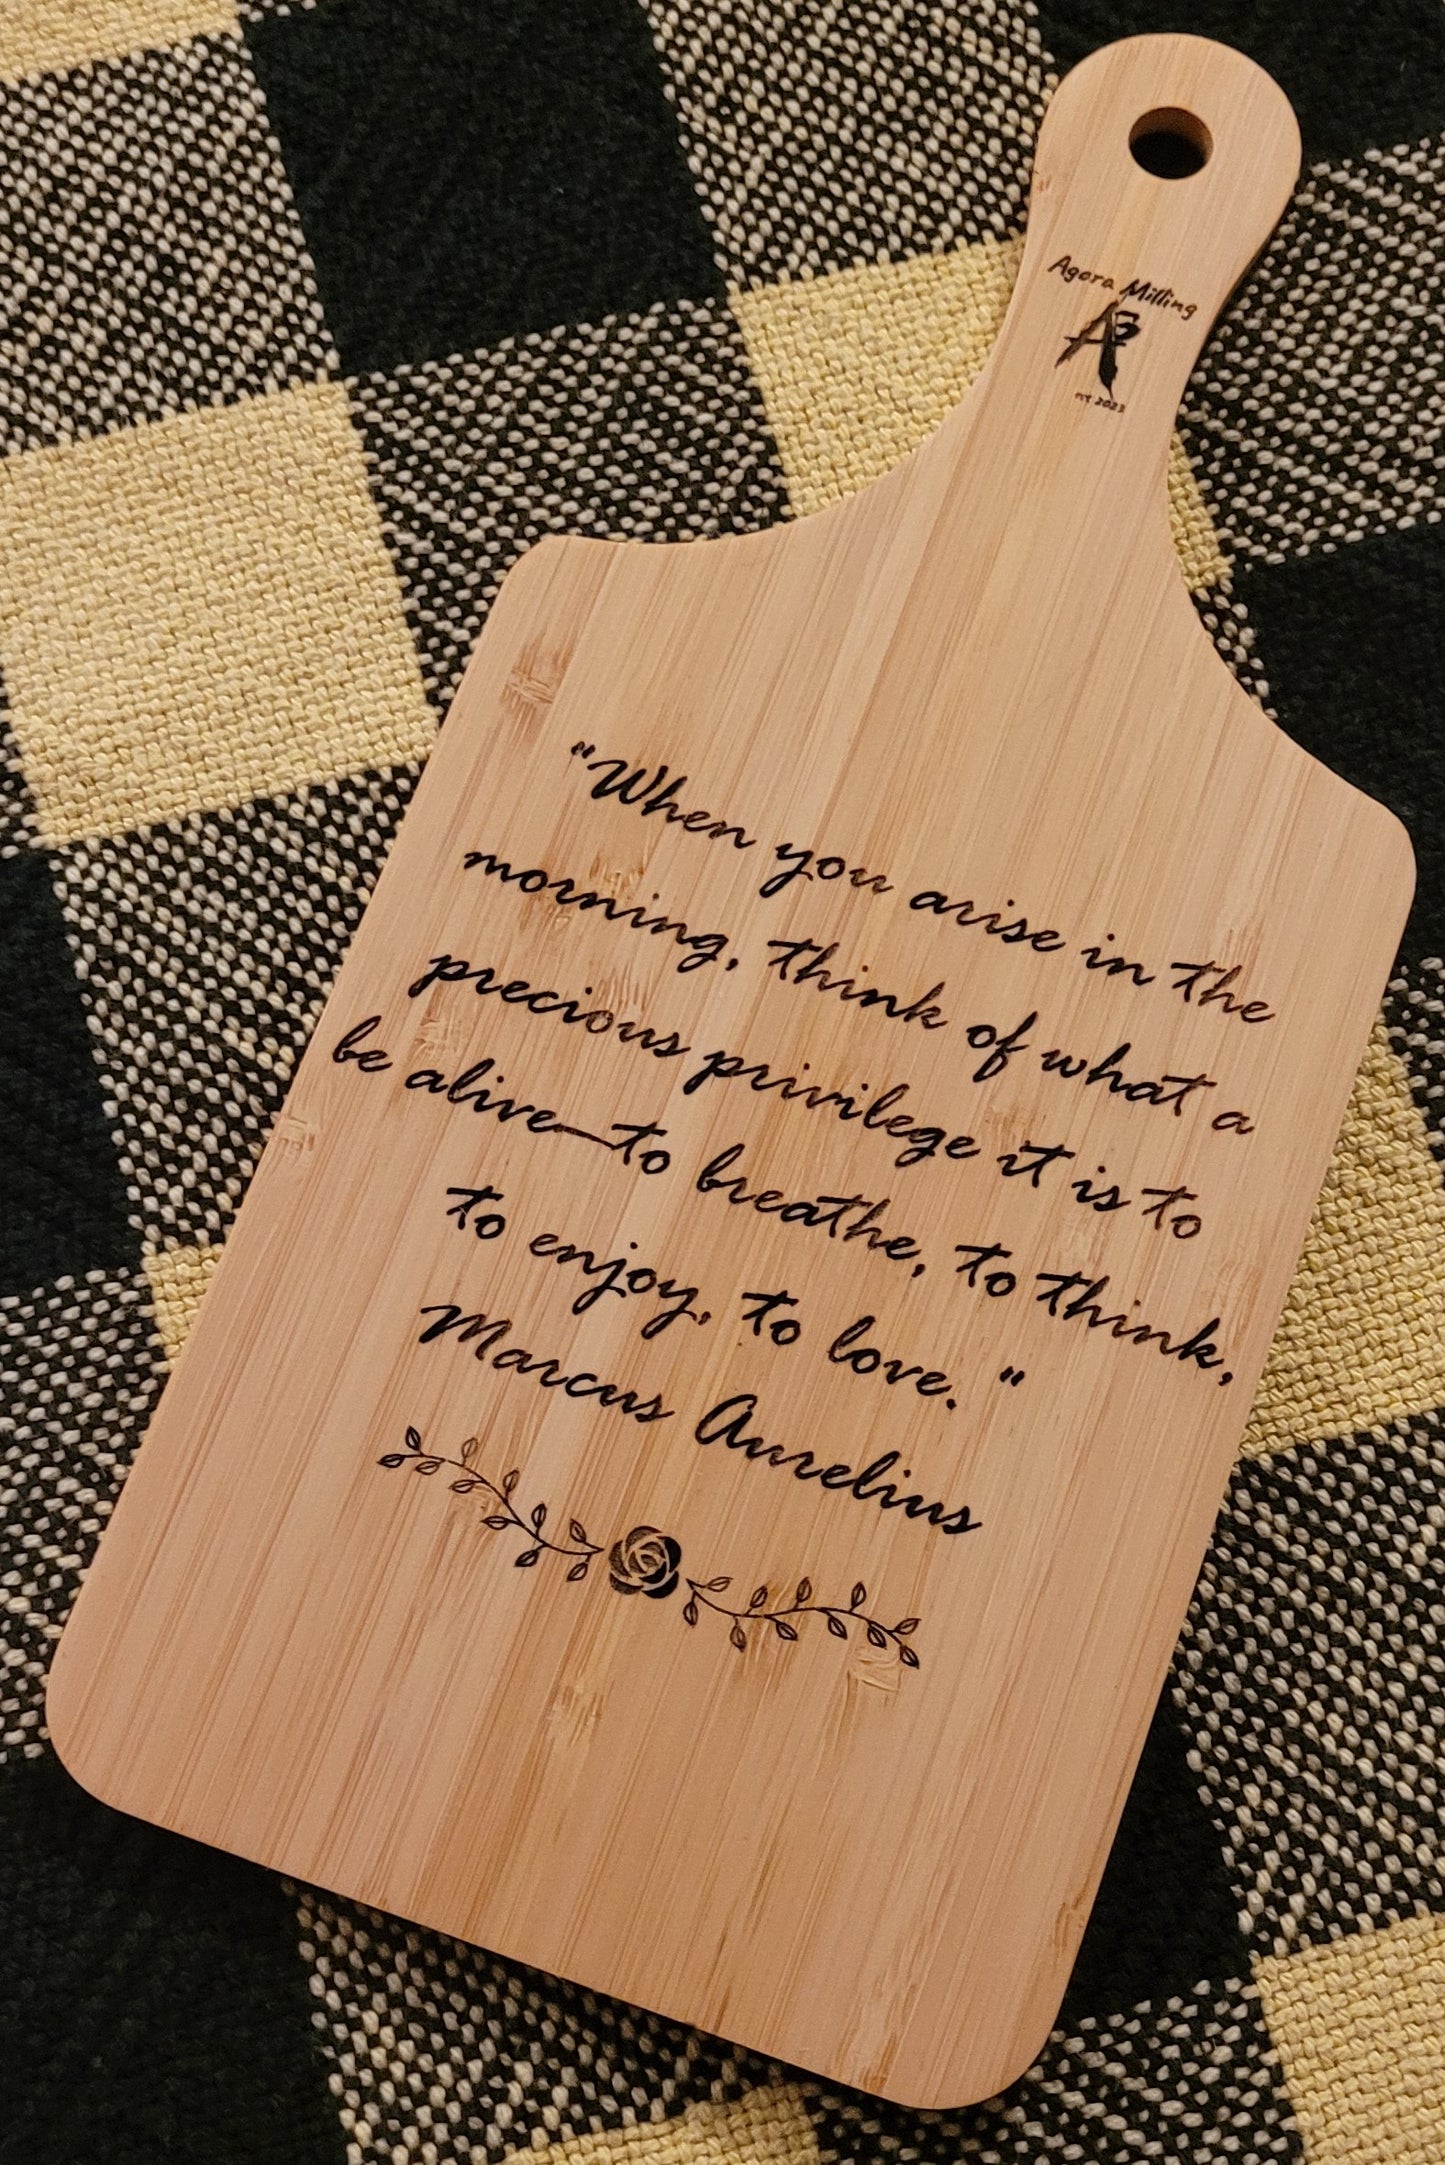 Agora Milling
est 2023
"When you arise in the
morning, think of what a
precious privilege it is to
be alive—to breathe, to think,
to enjoy, to love."
Marcus Aurelius